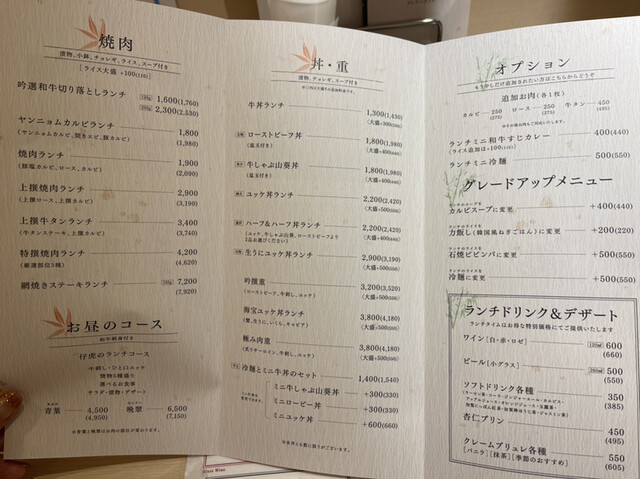 焼肉
漬物、小鉢、チョレギ、ライス、スープ付き
[ライス大盛 +100(110)]
吟選和牛切り落としランチ 100g 1,600(1,760)
200g 2,300(2,530)
ヤンニョムカルビランチ 1,800
(ヤンニョムカルビ、焼カスビ、豚カルビ) (1,980)
焼肉ランチ 1,900
(豚塩カルビ、ロース、カルビ) (2,090)
上撰焼肉ランチ 2,900
(上撰ロース、上撰カルビ) (3,190)
上撰牛タンランチ 3,400
(牛タンステーキ、上撰カルビ) (3,740)
特撰焼肉ランチ 4,200
(厳選部位5種) (4,620)
網焼きステーキランチ 7,200
(7,920)
お昼のコース
仔虎のランチコース
牛刺し・ひと口ユッケ
焼物5種盛り
選べるお食事
サラダ・漬物・デザート
青葉 4,500 晩翠 6,500
(4,950) (7,150)
※青葉と晩翠はお肉の部位が変わります。
丼・重
漬物、チョレギ、スープ付き
牛丼ランチ 1,300(1,430)
ローストビーフ丼 1,800(1,980)
(温玉付き)
牛しゃぶ山葵丼 1,800(1,980)
(温玉付き)
ユッケ丼ランチ 2,200(2,420)
ハーフ&ハーフ丼ランチ 2,200(2,420)
(ユッケ、牛しゃぶ山葵、ローストビーフより
2品お選びください)
生うにユッケ丼ランチ 2,900(3,190)
吟撰重 3,200(3,520)
(ローストビーフ、牛刺し、ユッケ)
海宝ユッケ丼ランチ 3,800(4,180)
(蟹、生うに、いくら、キャビア)
極み肉重 3,800(4,180)
(炙りサーロイン、牛刺し、ユッケ)
冷麺とミニ牛丼のセット 1,400(1,540)
ミニ牛しゃぶ山葵丼 +300(330)
ミニロービー丼 +300(330)
ミニユッケ丼 +600(660)
オプション
もう少しだけ追加されたい方はこちらからどうぞ
追加お肉(各1枚)
カルビ 250 ロース 250 牛タン 450
(275) (275) (495)
ランチミニ和牛すじカレー 400(440)
(ライス追加は+100(110))
ランチミニ冷麺 500(550)
グレードアップメニュー
カルビスープに変更 +400(440)
力飯し(韓国風ねぎごはん)に変更 +200(220)
石焼ビビンバに変更 +500(550)
冷麺に変更 +500(550)
ランチドリンク&デザート
ランチタイムはお得な特別価格にてご提供いたします
ワイン[白・赤・ロゼ] 600
(660)
ビール[小グラス] 500
(550)
ソフトドリンク各種 350
(385)
杏仁プリン 450
(495)
クレームブリュレ各種 550
[バニラ][抹茶][季節のおすすめ] (605)